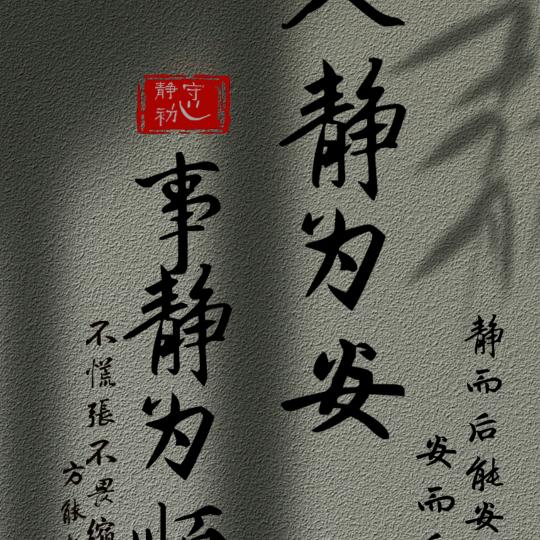 静而后能安
安而后
人静为安
事静为顺
守心
静初
不慌張不畏縮
方能